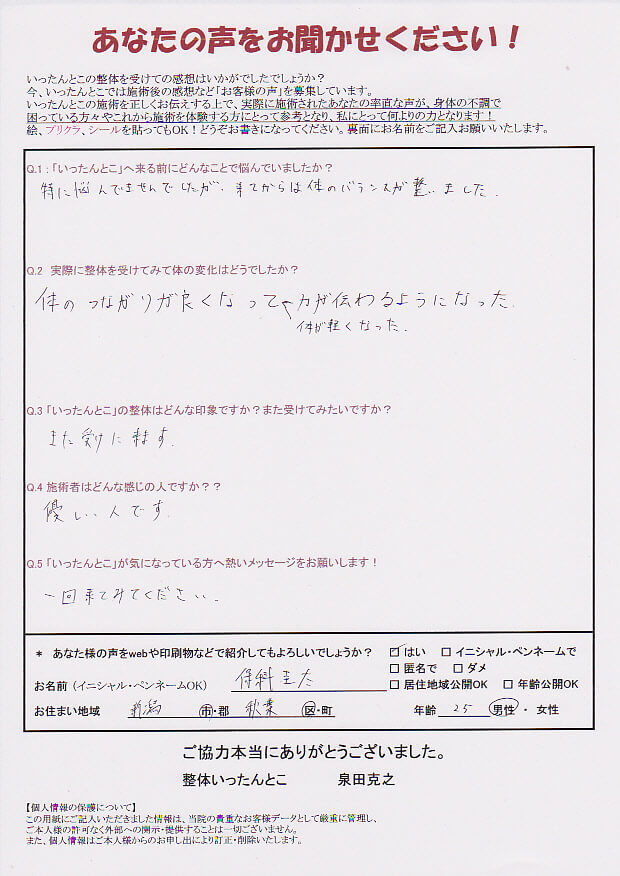 あなたの声をお聞かせください！
いったんとこの整体を受けての感想はいかがでしたでしょうか？
今、いったんとこでは施術後の感想など「お客様の声」を募集しています。
いったんとこの施術を正しくお伝えする上で、実際に施術されたあなたの率直な声が、身体の不調で
困っている方々やこれから施術を体験する方にとって参考となり、私にとって何よりの力となります！
絵、プリクラ、シールを貼ってもOK！どうぞお書きになってください。裏面にお名前をご記入お願いいたします。
Q.1：「いったんとこ」へ来る前にどんなことで悩んでいましたか？
特に悩んでませんでしたが、来てからは体のバランスが整いました。
Q.2 実際に整体を受けてみて体の変化はどうでしたか？
体のつながりが良くなって力が伝わるようになった。
体が軽くなった。
Q.3 「いったんとこ」の整体はどんな印象ですか？また受けてみたいですか？
また受けに来ます。
Q.4 施術者はどんな感じの人ですか？？
優しい人です。
Q.5 「いったんとこ」が気になっている方へ熱いメッセージをお願いします！
一回来てみてください。
＊ あなた様の声をwebや印刷物などで紹介してもよろしいでしょうか？ はい イニシャル・ペンネームで
匿名で ダメ
お名前（イニシャル・ペンネームOK） 保科圭太 居住地域公開OK 年齢公開OK
お住まい地域 新潟 市・郡 秋葉 区・町 年齢 25 男性 ・ 女性
ご協力本当にありがとうございました。
整体いったんとこ 泉田克之
【個人情報の保護について】
この用紙にご記入いただきました情報は、当院の貴重なお客様データとして厳重に管理し、
ご本人様の許可なく外部への開示・提供することは一切ございません。
また、個人情報はご本人様からのお申し出により訂正・削除いたします。